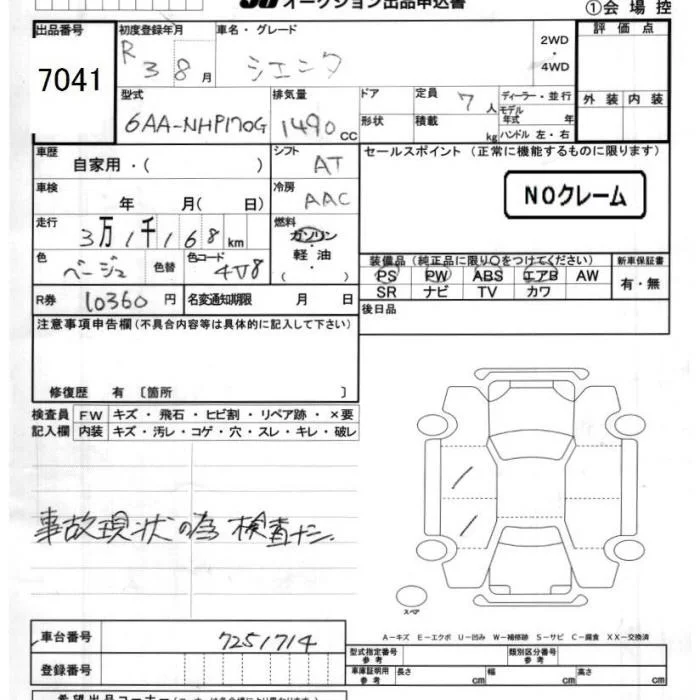 オークション出品申込書 ①会場控
出品番号 初度登録年月 車名・グレード 2WD・4WD 評価点
7041 R3 8月 シエンタ 外装 内装
型式 排気量 ドア 定員 7人 ディーラー・並行
6AA-NHP170G 1490cc 形状 積載 kg モデル年式 年 ハンドル 左・右
車歴 自家用・( ) シフト AT セールスポイント (正常に機能するものに限ります)
車検 年 月( 日) 冷房 AAC NOクレーム
走行 3万1千168km 燃料 ガソリン・軽油・( )
色 ベージュ 色替 色コード 4V8 装備品(純正品に限り○をつけてください) 新車保証書
PS PW ABS エアB AW 有・無
SR ナビ TV カワ
R券 10360円 名変通知期限 月 日 後日品
注意事項申告欄(不具合内容等は具体的に記入して下さい)
修復歴 有 〔箇所 〕
検査員記入欄 FW キズ・飛石・ヒビ割・リペア跡・×要
内装 キズ・汚レ・コゲ・穴・スレ・キレ・破レ
事故現状の為検査ナシ
スペア
A-キズ E-エクボ U-凹み W-補修跡 S-サビ C-腐食 XX-交換済
車台番号 7251714 型式指定番号参考 類別区分番号参考
登録番号 車庫証明用参考 長さ cm 幅 cm 高さ cm
希望出品コーナー